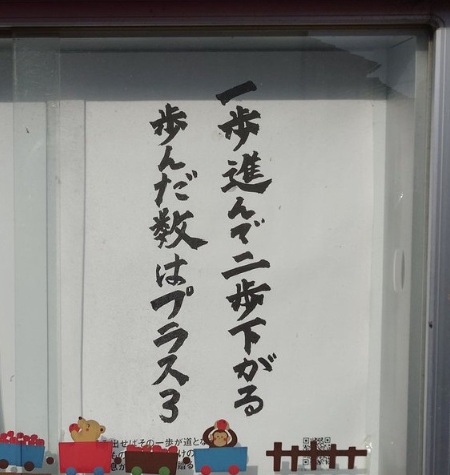 一歩進んで二歩下がる
歩んだ数はプラス3
出せばその一歩が道とな